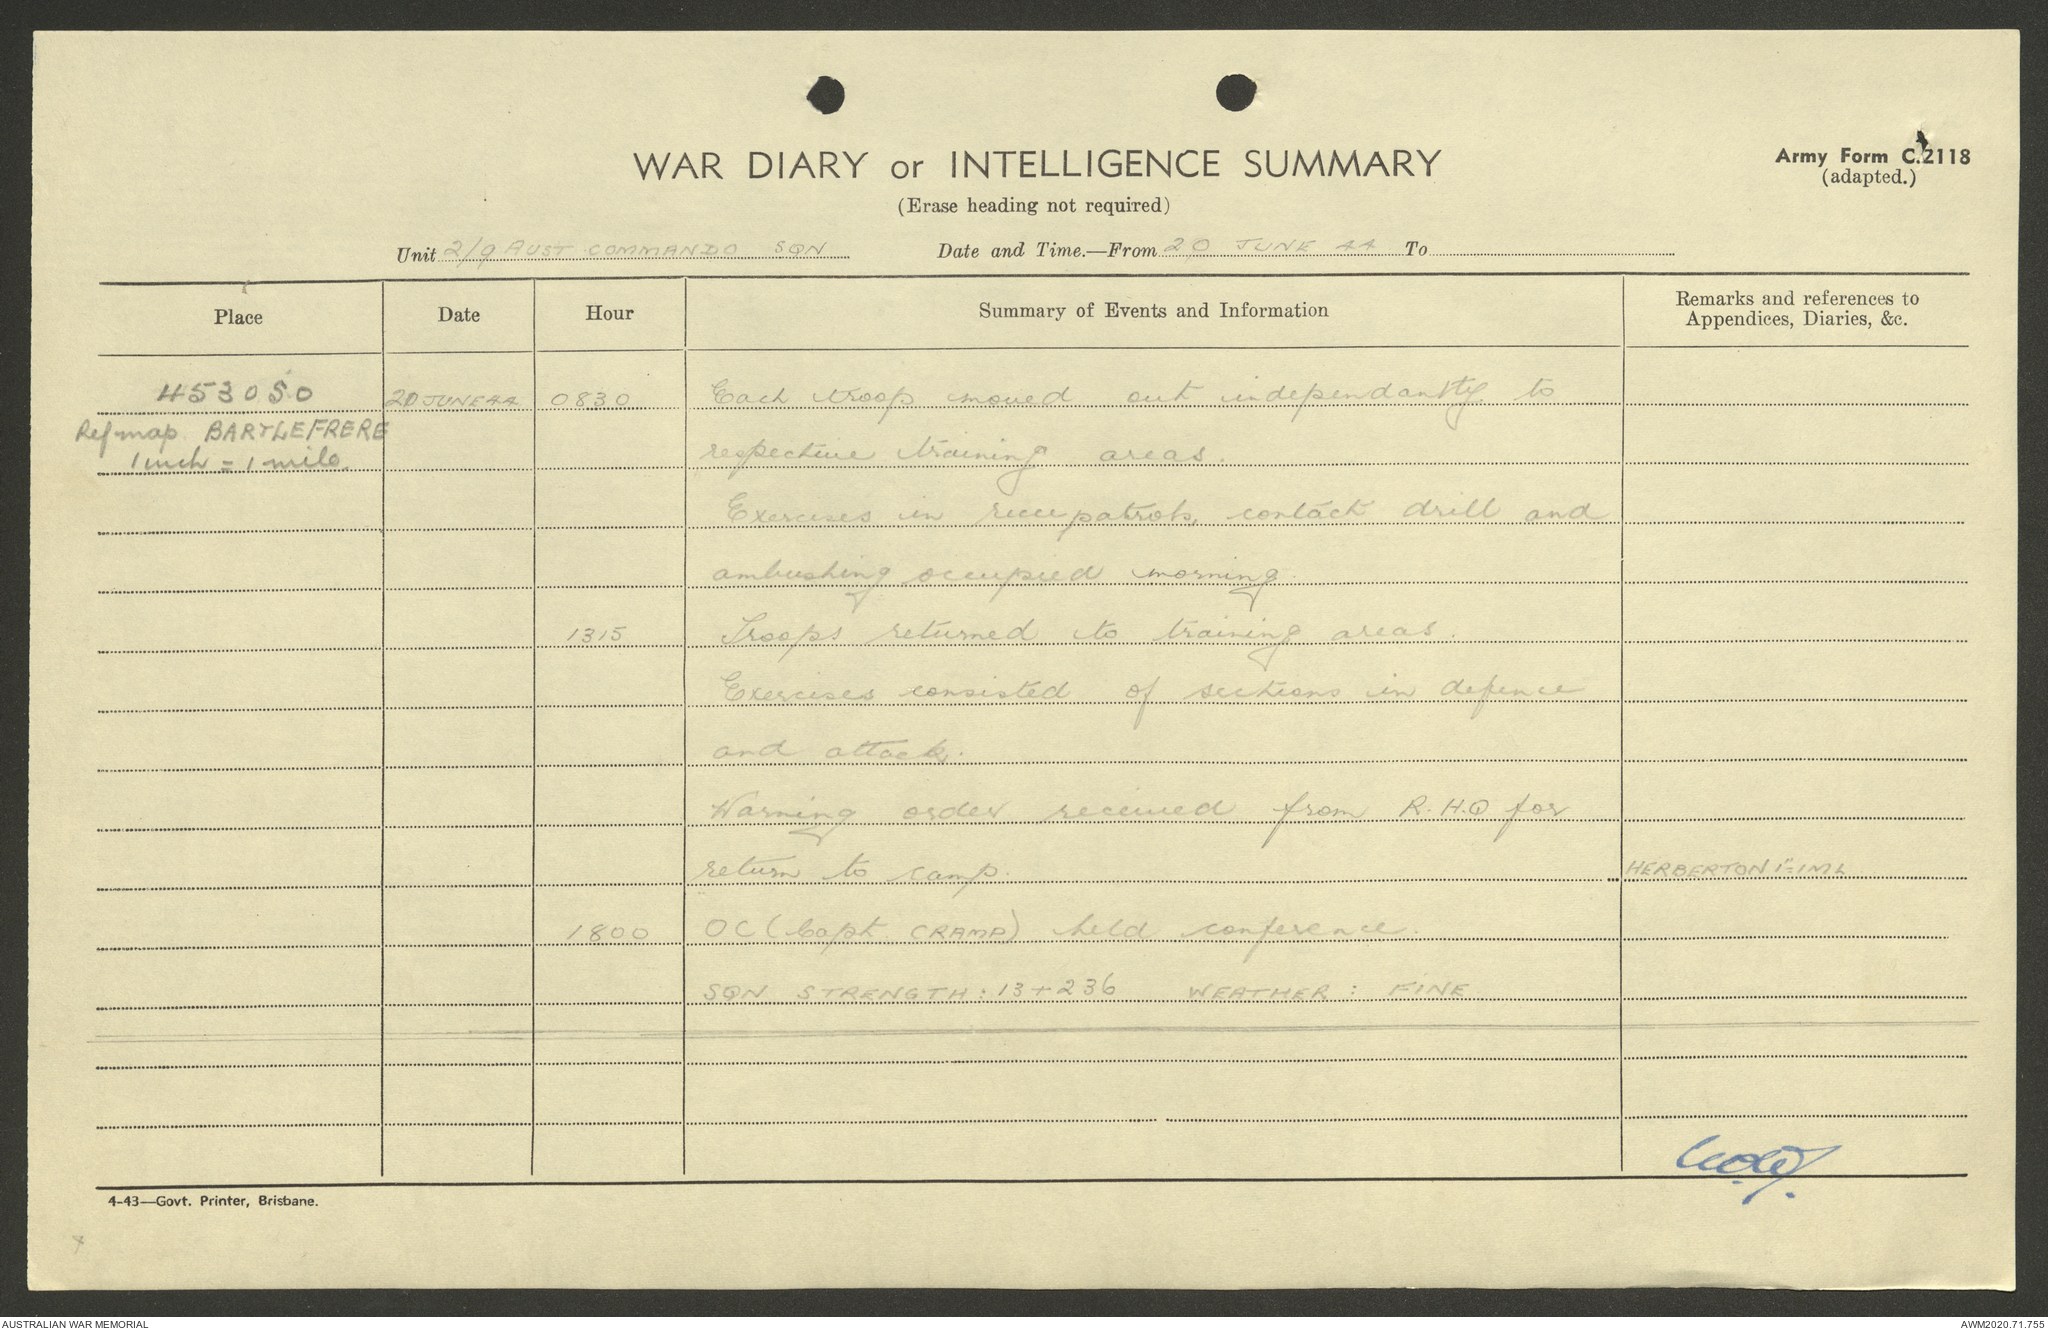 WAR DIARY or INTELLIGENCE SUMMARY
Army Form C.2118
(adapted.)
(Erase heading not required)
Unit 2/9 AUST COMMANDO SQN Date and Time.—From 20 JUNE 44 To
Place Date Hour Summary of Events and Information Remarks and references to
Appendices, Diaries, &c.
453050 20 JUNE 44 0830 Each troop moved out independantly to
Ref map BARTLEFRERE
1 inch = 1 mile. respective training areas.
Exercises in recce patrols, contact drill and
ambushing occupied morning.
1315 Troops returned to training areas.
Exercises consisted of sections in defence
and attack.
Warning order received from R.H.Q for
return to camp. HERBERTON 1"=1ML
1800 OC (Capt CRAMP) held conference.
SQN STRENGTH: 13+236 WEATHER: FINE
4-43—Govt. Printer, Brisbane.
AUSTRALIAN WAR MEMORIAL AWM2020.71.755